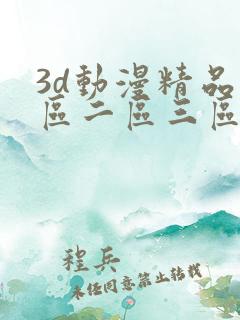 3d動漫精品
區二區三區
程兵
未任同意禁止转载